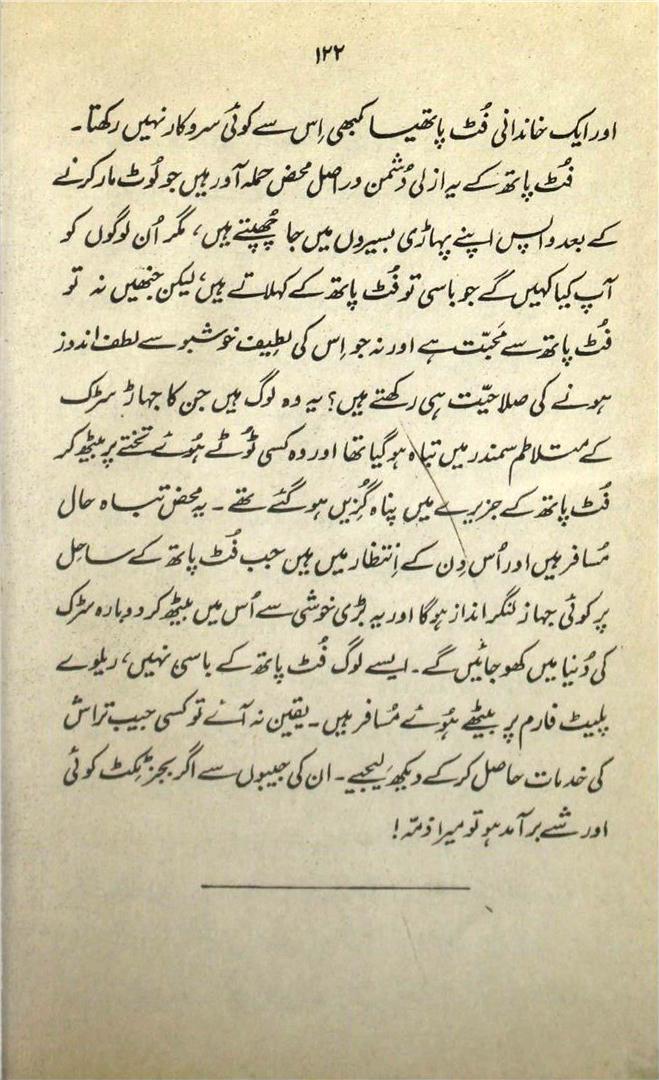 ۱۲۲
اور ایک خاندانی فُٹ پاتھیا کبھی اِس سے کوئی سروکار نہیں رکھتا۔
فُٹ پاتھ کے یہ ازلی دُشمن دراصل محض حملہ آور ہیں جو لُوٹ مار کرنے
کے بعد واپس اپنے پہاڑی بسیروں میں جا چُھپتے ہیں، مگر اُن لوگوں کو
آپ کیا کہیں گے جو باسی تو فُٹ پاتھ کے کہلاتے ہیں، لیکن جنھیں نہ تو
فُٹ پاتھ سے مَحبّت ہے اور نہ جو اِس کی لطِیف خوشبو سے لطف اندوز
ہونے کی صلاحیّت ہی رکھتے ہیں؟ یہ وہ لوگ ہیں جن کا جہاز سڑک
کے متلاطم سمندر میں تباہ ہو گیا تھا اور وہ کسی ٹُوٹے ہُوئے تختے پر بیٹھ کر
فُٹ پاتھ کے جزیرے میں پناہ گُزیں ہو گئے تھے۔ یہ محض تباہ حال
مُسافر ہیں اور اُس دِن کے اِنتظار میں ہیں جب فُٹ پاتھ کے ساحِل
پر کوئی جہاز لنگر انداز ہوگا اور یہ بڑی خوشی سے اُس میں بیٹھ کر دوبارہ سڑک
کی دُنیا میں کھو جائیں گے۔ ایسے لوگ فُٹ پاتھ کے باسی نہیں، ریلوے
پلیٹ فارم پر بیٹھے ہُوئے مُسافر ہیں۔ یقین نہ آئے تو کسی جیب تراش
کی خدمات حاصل کر کے دیکھ لیجیے۔ ان کی جیبوں سے اگر بجز ٹِکٹ کوئی
اور شے برآمد ہو تو میرا ذمّہ!